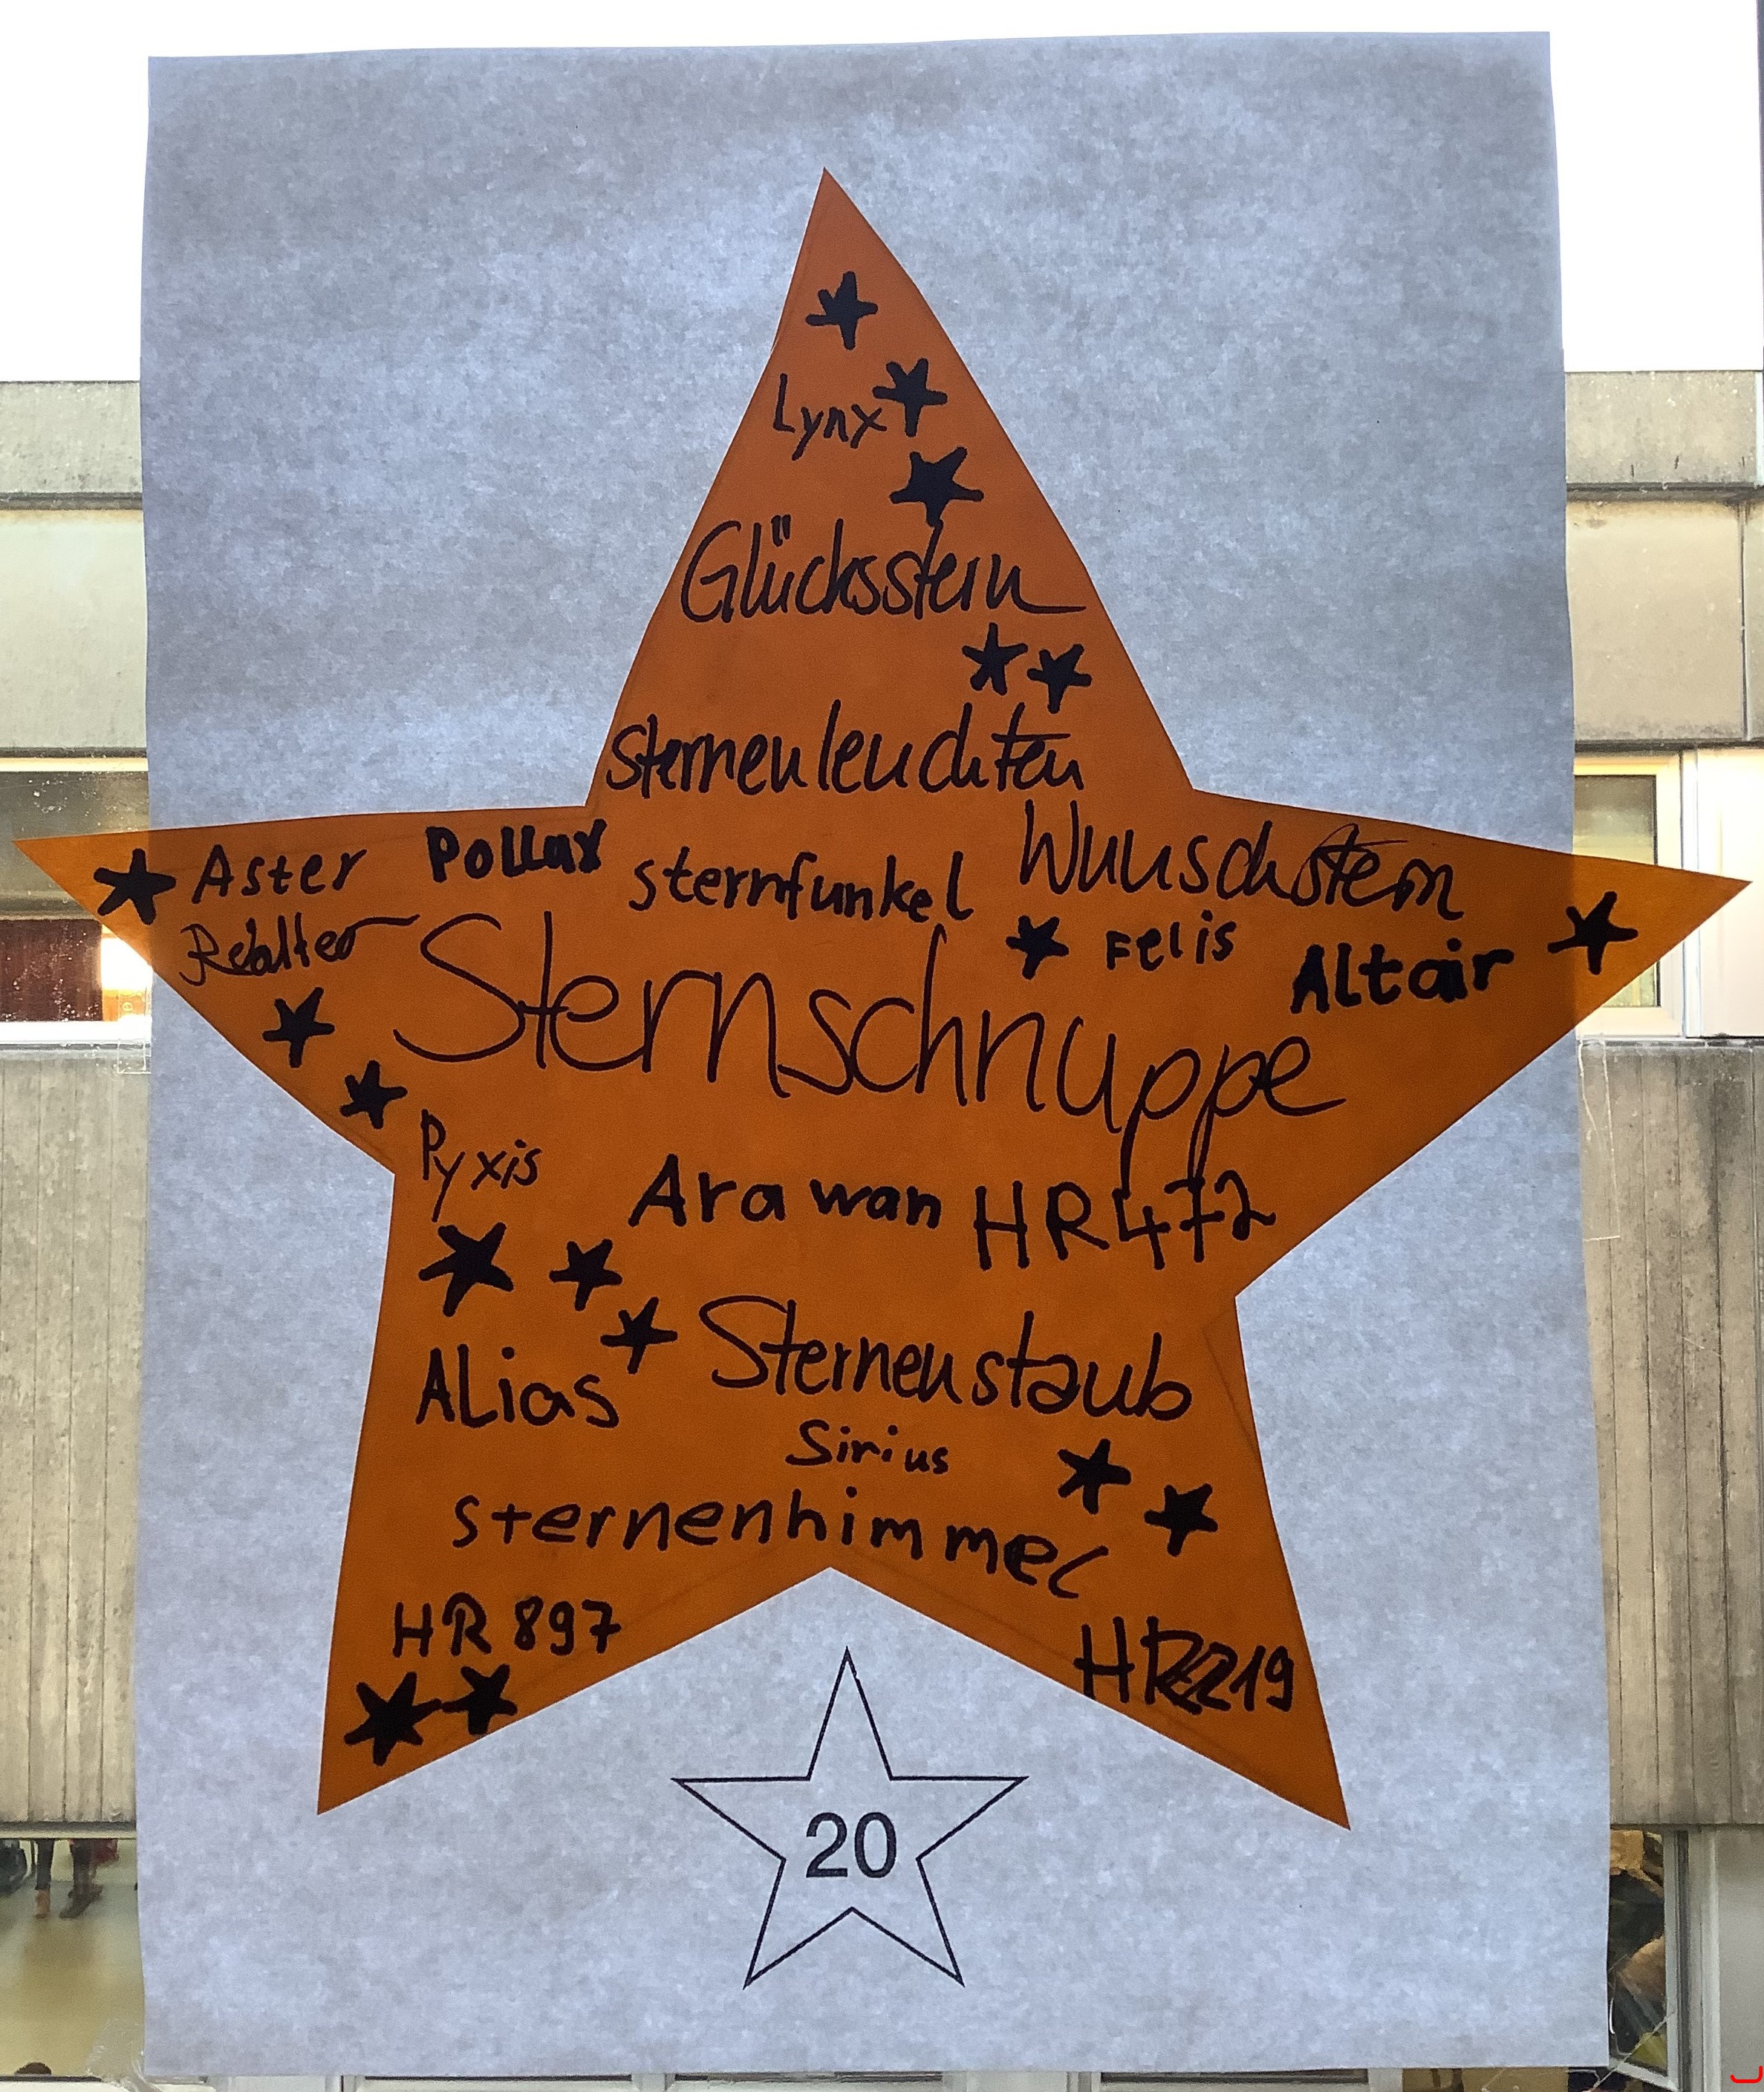 Lynx
Glücksstern
Sternenleuchten
Aster Pollux sternfunkel Wunschstern
Felis Altair
Sternschnuppe
Pyxis
Arawan HR472
ALias Sternenstaub
Sirius
sternenhimmel
HR 897
HR219
20